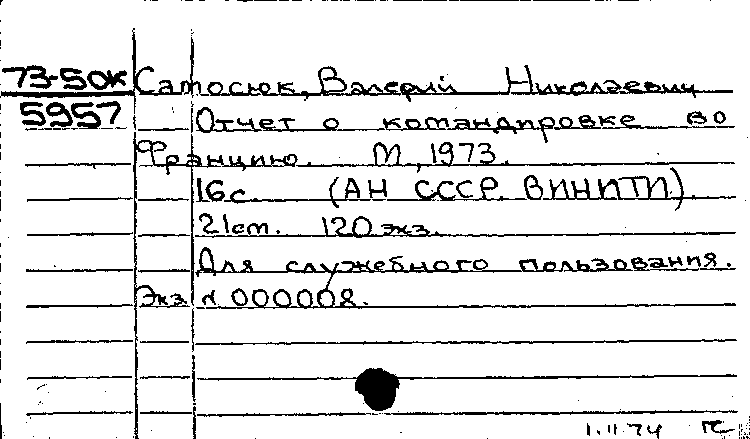 73-50к Сатосюк, Валерий Николаевич
5957 Отчет о командировке во
Францию. М., 1973.
16с. (АН СССР. ВИНИТИ).
21см. 120 экз.
Для служебного пользования.
Экз. № 000008.
1.11.74